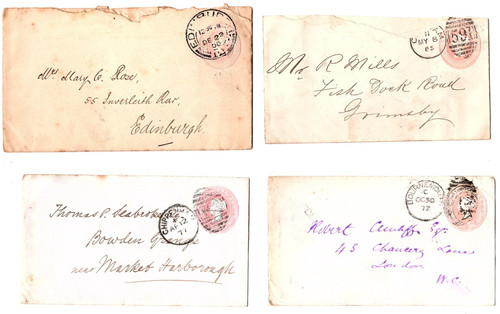 EDINBURGH
DE 22
Mrs Mary C. Rose,
55 Inverleith Row,
Edinburgh.
MY 8
85
Mr R Mills
Fish Dock Road
Grimsby
CHIPPENHAM
AP 12
77
Thomas P. Seabroke
Bowden Grange
near Market Harborough
BOURNEMOUTH
C
OC 30
72
Robert Cunliffe Esq
45 Chancery Lane
London
W.C.